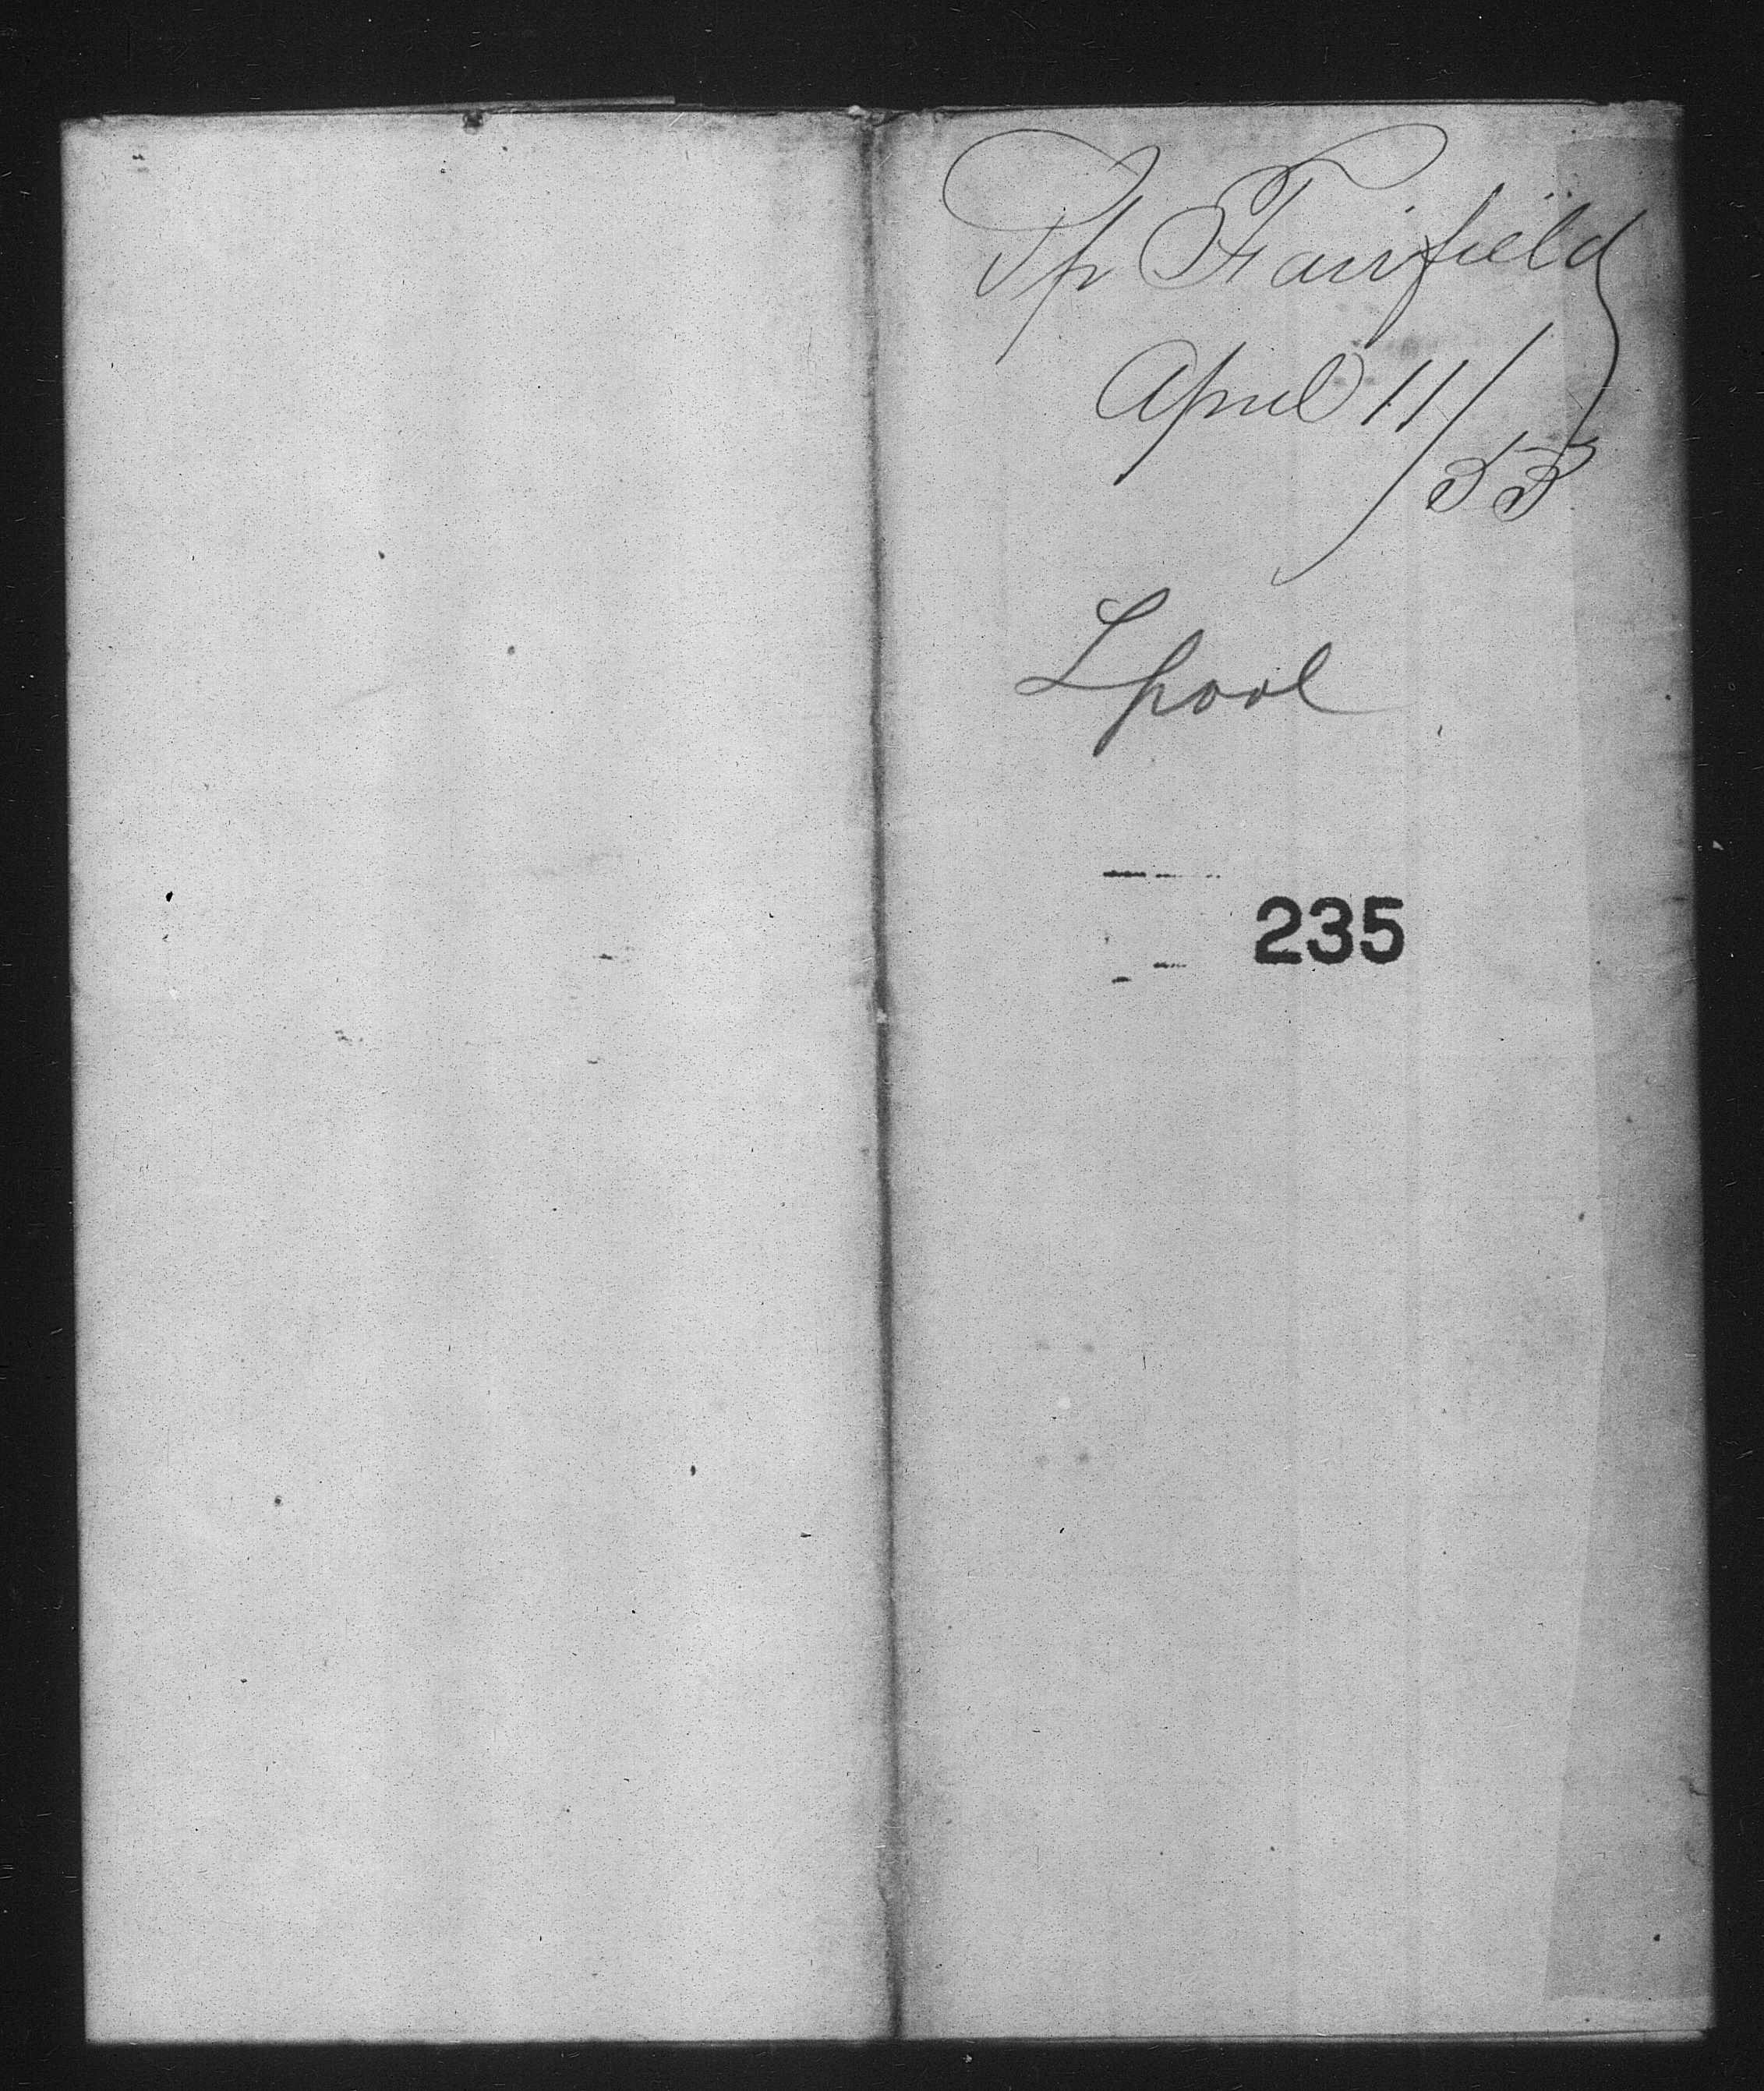 Sp Fairfield
April 11/
53
Lpool
235